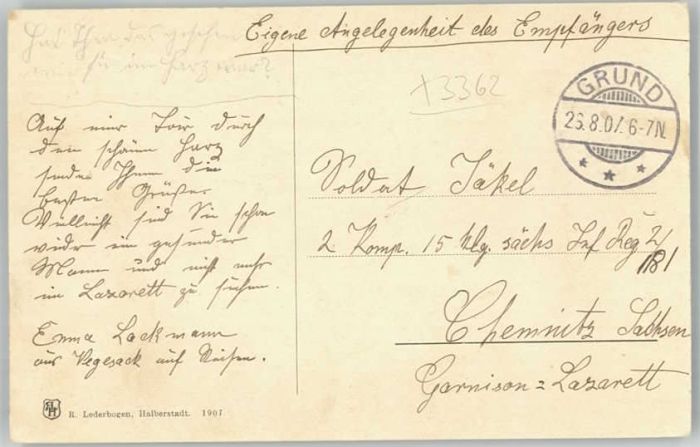 Eigene Angelegenheit des Empfängers
Hat Ihnen das gefallen
im Harz war?
x3362
GRUND
25.8.07. 6-7N.
Auf einer Tour durch
den schönen Harz
sende Ihnen die
besten Grüße.
Vielleicht sind Sie schon
wieder ein gesunder
Mann und nicht mehr
im Lazarett zu suchen.
Emma Lackmann
aus Vegesack auf Reisen.
Soldat Täkel
2 Komp. 15 Klg. sächs Inf Reg
181
Chemnitz Sachsen
Garnison=Lazarett
R. Lederbogen, Halberstadt. 1907